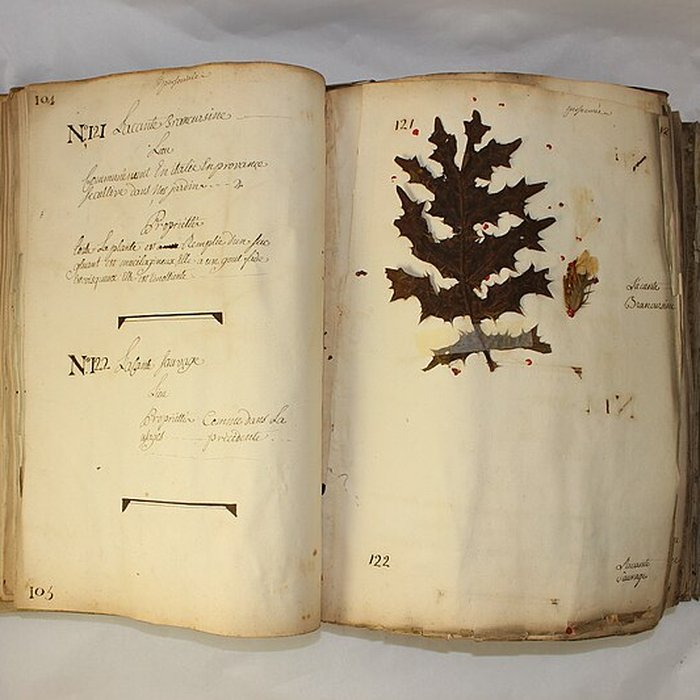 104
N.º121 Lacante Brancursine
Lieu
Communement En italie En provance
Secultive dans Nos jardins
Proprieté
toute La plante est Remplie d'un suc
gluant et mucilagineux, Elle a un gout fade
et visqueux Elle est Emoliante
N.º122 Lacante Sauvage
Lieu
Proprietés Comme dans La
usages précédente
105
121
Lacante
Brancursine
122
Lacante
Sauvage